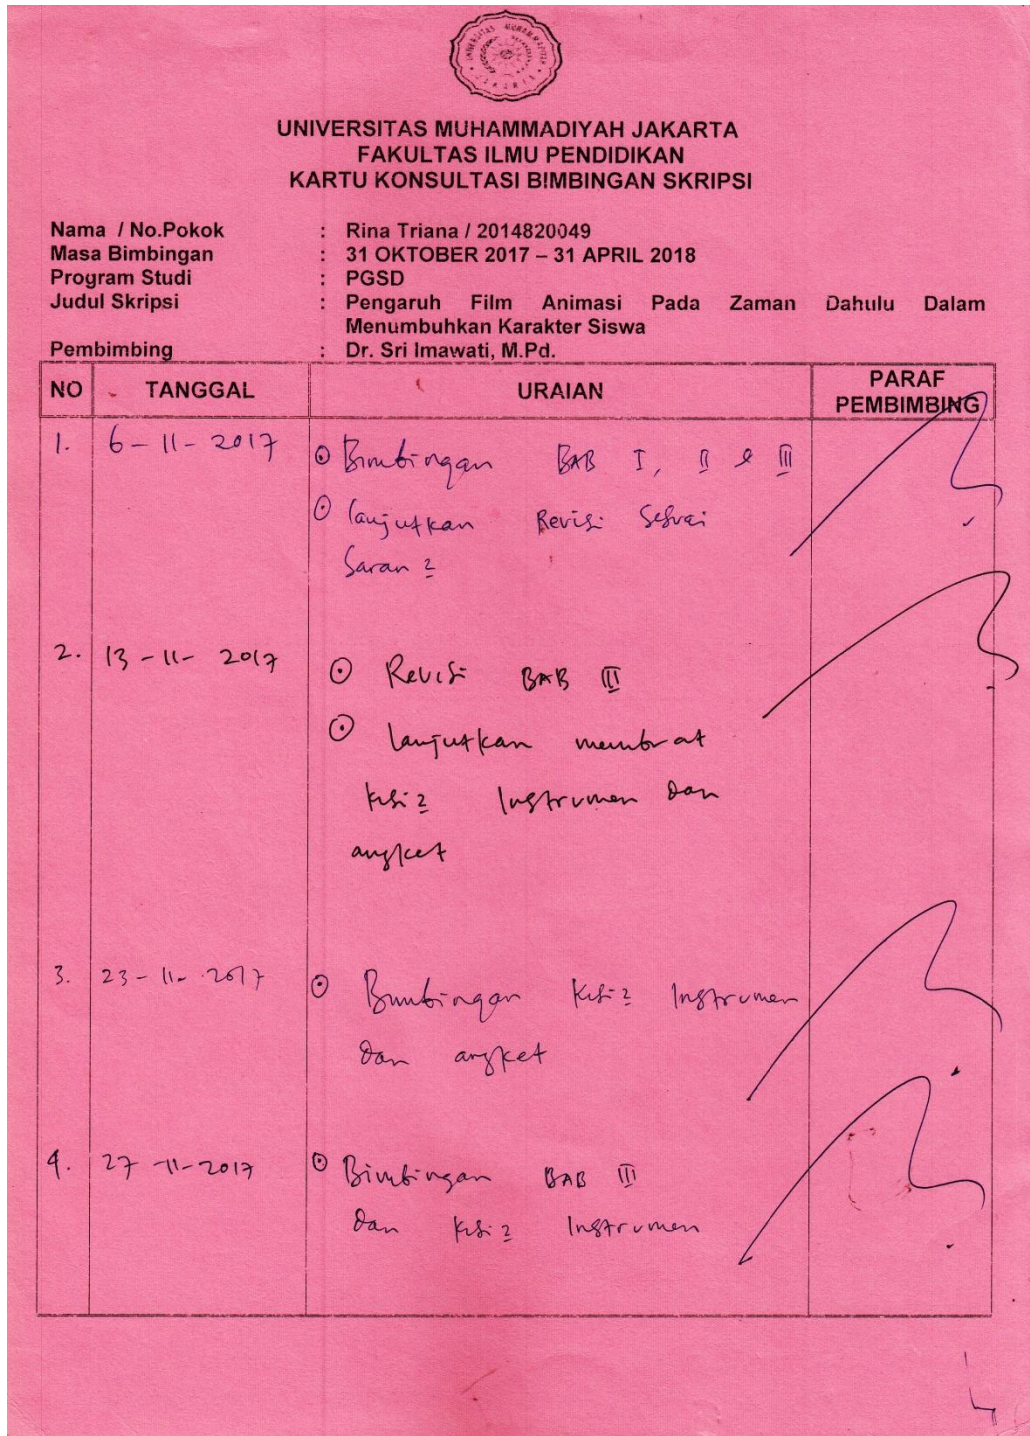 UNIVERSITAS MUHAMMADIYAH JAKARTA
FAKULTAS ILMU PENDIDIKAN
KARTU KONSULTASI BIMBINGAN SKRIPSI
Nama / No.Pokok : Rina Triana / 2014820049
Masa Bimbingan : 31 OKTOBER 2017 – 31 APRIL 2018
Program Studi : PGSD
Judul Skripsi : Pengaruh Film Animasi Pada Zaman Dahulu Dalam
Menumbuhkan Karakter Siswa
Pembimbing : Dr. Sri Imawati, M.Pd.
NO TANGGAL URAIAN PARAF PEMBIMBING
1. 6-11-2017 Bimbingan BAB I, II & III
lanjutkan Revisi Sesuai
Saran 2
2. 13-11-2017 Revisi BAB III
lanjutkan membuat
kisi 2 Instrumen dan
angket
3. 23-11-2017 Bimbingan Kisi 2 Instrumen
dan angket
4. 27-11-2017 Bimbingan BAB III
dan kisi 2 Instrumen